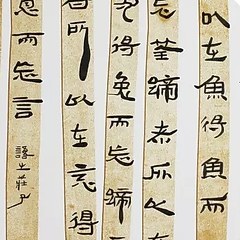 以在魚得魚而
忘荃蹄者所以在
兔得兔而忘蹄
者所以在意得
意而忘言
莊子